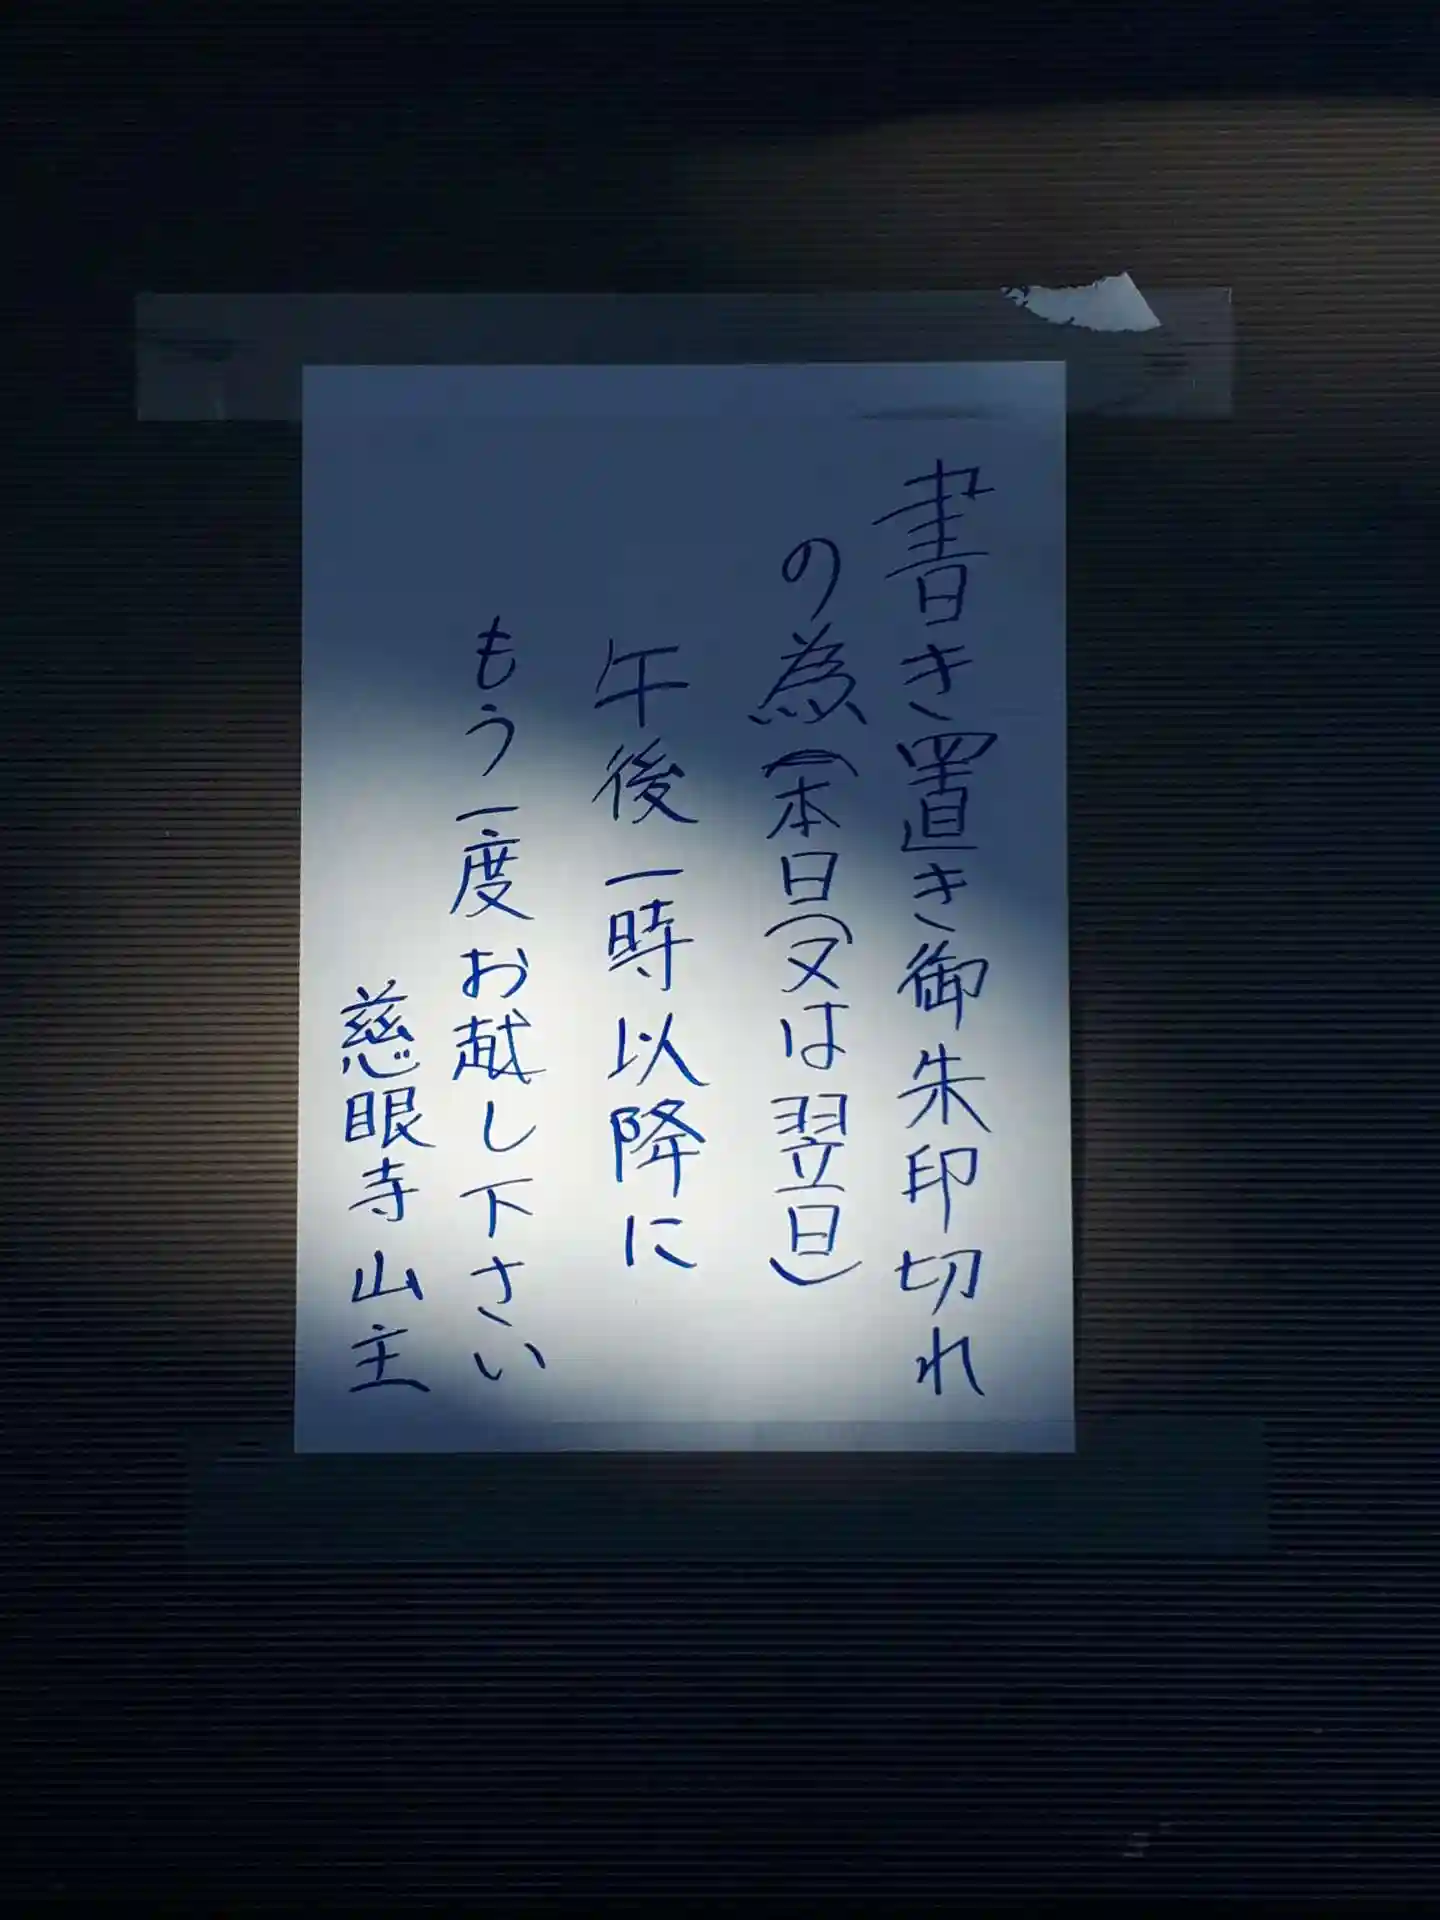 書き置き御朱印切れ
の為(本日(又は翌日)
午後一時以降に
もう一度お越し下さい
慈眼寺山主